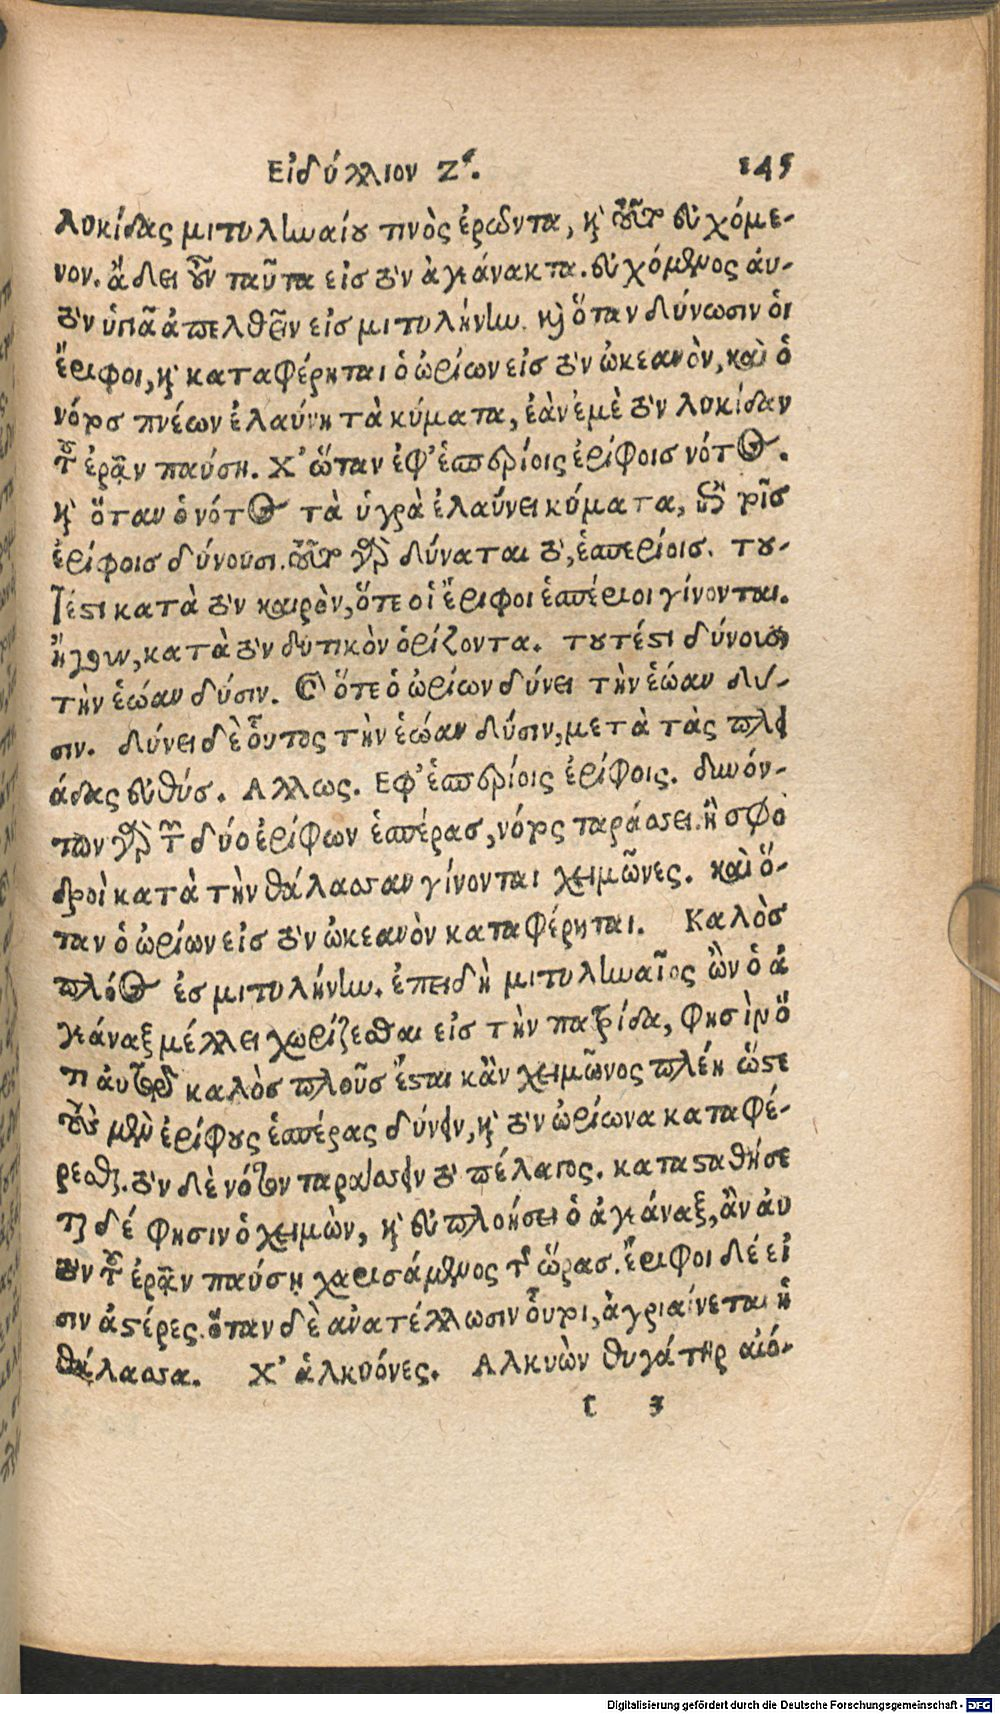 Εἰδύλλιον Ζʹ. 145
λυκίδας μιτυληναίου τινὸς ἐρῶντα, κὶ οὕτως εὐχόμε-
νον. ᾄδει οὖν ταῦτα εἰς τὸν ἀγεάνακτα. εὐχόμενος ἀυ-
τὸν ὑγιᾶ ἀπελθεῖν εἰς μιτυλήνην. κὶ ὅταν δύνωσιν ὁι
ἔριφοι, κὶ καταφέρηται ὁ ὠρίων εἰς τὸν ὠκεανὸν, καὶ ὁ
νότος πνέων ἐλαύνη τὰ κύματα, ἐὰν ἐμὲ τὸν λυκίδαν
τοῦ ἐρᾷν παύσῃ. Χ’ ὥταν ἐφ’ ἑσπερίοις ἐρίφοις νότος.
κὶ ὅταν ὁ νότος τὰ ὑγρὰ ἐλαύνει κύματα, ἐπὶ τοῖς
ἐρίφοις δύνουσι. οὕτως γὰρ δύναται τὸ, ἑσπερίοις. του-
τέστι κατὰ τὸν καιρὸν, ὅτε οἱ ἔριφοι ἑσπέριοι γίνονται.
ἤγουν, κατὰ τὸν δυτικὸν ὁρίζοντα. τουτέστι δύνουσι
τὴν ἑώαν δύσιν. καὶ ὅτε ὁ ὠρίων δύνει τὴν ἑώαν δύ-
σιν. δύνει δὲ οὗτος τὴν ἑώαν δύσιν, μετὰ τὰς πλει
άδας εὐθύς. Αλλως. Εφ’ ἑσπερίοις ἐρίφοις. δυνόν-
των γὰρ τῶν δύο ἐρίφων ἑσπέρας, νότος ταράσσει. ἢ σφο
δροὶ κατὰ τὴν θάλασσαν γίνονται χειμῶνες. καὶ ὅ-
ταν ὁ ὠρίων εἰς τὸν ὠκεανὸν καταφέρηται. Καλὸς
πλόος ἐς μιτυλήνην. ἐπειδὴ μιτυληναῖος ὢν ὁ ἀ
γεάναξ μέλλει χωρίζεσθαι εἰς τὴν πατρίδα, φησὶν ὅ
τι ἀυτῷ καλὸς πλοῦς ἔσται κἂν χειμῶνος πλέῃ ὥστε
τοὺς μὲν ἐρίφους ἑσπέρας δύνειν, κὶ τὸν ὠρίωνα καταφέ-
ρεσθαι. τὸν δὲ νότον ταράσσειν τὸ πέλαγος. κατασταθήσε
ται δέ φησιν ὁ χειμὼν, κὶ εὐπλοήσει ὁ ἀγεάναξ, ἂν ἀυ
τὸν τοῦ ἐρᾷν παύσῃ χαρισάμενος τῆς ὥρας. ἔριφοι δέ εἰ
σιν ἀστέρες. ὅταν δὲ ἀνατέλλωσιν οὗτοι, ἀγριαίνεται ἡ
θάλασσα. Χ’ ἁλκυόνες. Αλκυὼν θυγάτηρ αἰό-